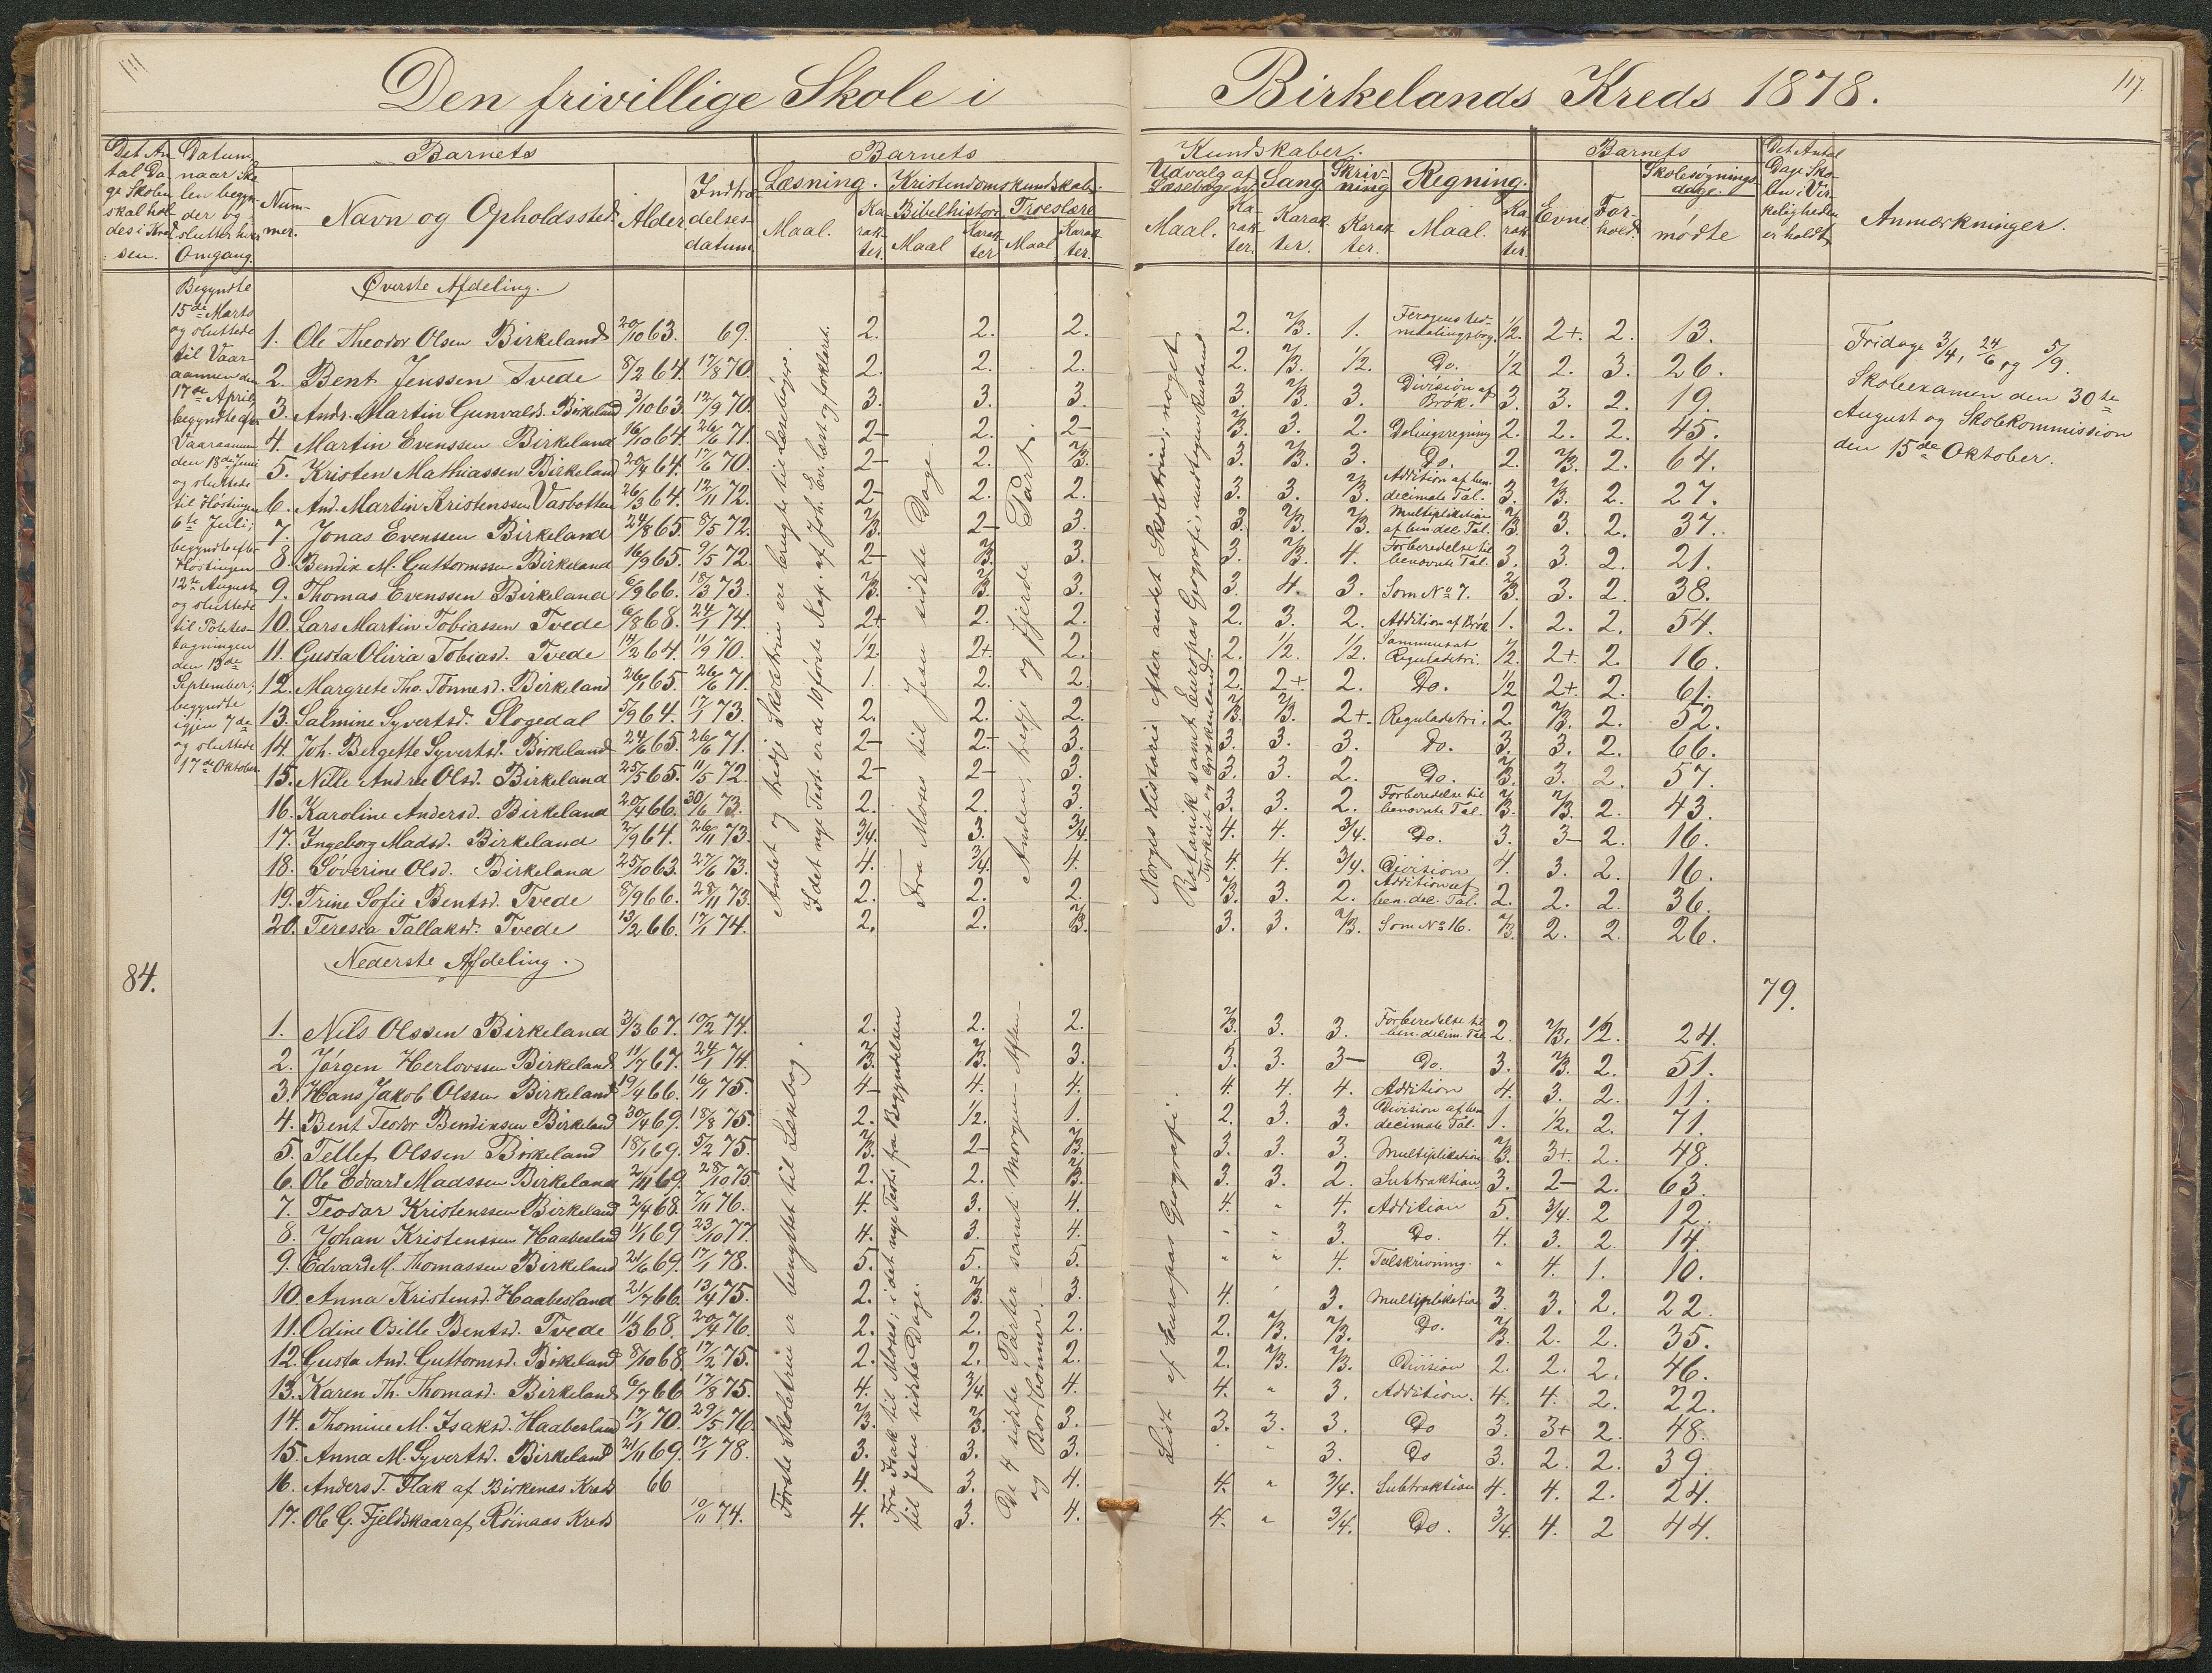 Den frivillige Skole i Birkelands Kreds 1878.
117
Det Antal Dage Skolen skal holdes i Kredsen.
Datum, naar Skolen begynder og slutter hver Omgang.
Barnets
Nummer.
Navn og Opholdssted
Alder
Indtrædelsesdatum
Barnets Kundskaber.
Læsning. Kristendomskundskab.
Bibelhistorie Troeslære
Maal. Karakter. Maal Karakter Maal Karakter.
Udvalg af Læsebogen. Sang Skrivning Regning.
Maal. Karakter. Karakter. Karakter. Maal. Karakter.
Barnets
Evne Forhold. Skolesøgningsdage. mødte
Det Antal Dage Skolen i Virkeligheden er holdt
Anmærkninger.
Begyndte
15de Marts
og sluttede
til Vaar-
aannen den
17de April,
begyndte efter
Vaaraannen
den 18de Juni
og sluttede
til Høstingen
6te Juli;
begyndte efter
Høstingen
12te August
og sluttede
til Potetes-
tagningen
den 13de
September;
begyndte
igjen 7de
og sluttede
17de Oktober
84.
Øverste Afdeling.
1. Ole Theodor Olsen Birkeland 20/10 63. 69. 2. 2. 2. 2. 2/3. 1. 1/2. 2+. 2. 13.
2. Bent Jenssen Tvede 8/2 64. 17/8 70. 2. 2. 2. 2. 2/3. 1/2. Do. 1/2 2. 3. 26.
3. Andr. Martin Gunvalds. Birkeland 3/10 63. 12/9 70. 3. 3. 3. 3. 2/3. 3. Division af Brøk. 3. 3. 2. 19.
4. Martin Evenssen Birkeland 16/10 64. 26/6 71. 2- 2. 2- 2/3. 3. 2. Delingsregning 2. 2. 2. 45.
5. Kristen Mathiassen Birkeland 20/4 64. 17/6 70. 2- 2. 2/3. 3. 2/3. 3. Do. 2. 2/3. 2. 64.
6. And. Martin Kristenssen Vasbotten 26/3 64. 12/11 72. 2- 2. 2. 3. 3. 2/3. Addition af ben. decimale Tal. 3. 2/3. 2. 27.
7. Jonas Evenssen Birkeland 24/8 65. 8/5 72. 2/3. 2- 3. 3. 2/3. 2/3. Multiplikation af ben. dec. Tal. 2/3. 3. 2. 37.
8. Bendix M. Guttormssen Birkeland 16/9 65. 9/5 72. 2- 2/3. 3. 3. 2/3. 4. Forberedelse til benævnte Tal. 3. 3. 2. 21.
9. Thomas Evenssen Birkeland 6/9 66. 18/3 73. 2/3. 2/3. 3. 3. 4. 3. Som No 7. 2/3. 3. 2. 38.
10. Lars Martin Tobiassen Tvede 6/8 68. 24/1 74. 2+ 2. 2. 2. 3. 2. Addition af Brøk 1. 2. 2. 54.
11. Gusta Olivia Tobiasd. Tvede 14/2 64. 11/9 70. 1/2 2+. 2. 2. 1/2. 1/2. Sammensat Reguladetri. 1/2. 2+. 2. 16.
12. Margrete Tho. Tønnesd. Birkeland 26/1 65. 26/6 71. 1. 2. 2. 2. 2+. 2. Do. 1/2 2+. 2. 61.
13. Salmine Syvertsd. Slogedal 5/9 64. 17/1 73. 2. 2. 2. 2/3. 2/3. 2+. Reguladetri. 2. 2/3. 2. 52.
14. Joh. Bergette Syvertsd. Birkeland 24/6 65. 26/6 71. 2- 2- 3. 3. 3. 3. Do. 3. 3. 2. 66.
15. Nille Andrea Olsd. Birkeland 25/5 65. 11/5 72. 2- 2- 3. 3. 3. 2. Do. 2/3. 3. 2. 57.
16. Karoline Andersd. Birkeland 20/4 66. 30/6 73. 2. 2. 3. 3. 3. 2. Forberedelse til benævnte Tal. 2/3. 2/3. 2. 43.
17. Ingeborg Madsd. Birkeland 2/9 64. 26/11 73. 3/4. 3. 3/4 4. 4. 3/4. Do. 3. 3- 2. 16.
18. Søverine Olsd. Birkeland 25/10 63. 27/6 73. 4. 3/4. 4. 4. 4. 3/4. Division 4. 3. 2. 16.
19. Trine Sofie Bentsd. Tvede 8/9 66. 28/11 73. 2. 2. 2. 2/3. 3. 2. Addition af ben. dec. Tal. 2. 2. 2. 36.
20. Teresia Tallaksd. Tvede 13/2 66. 17/1 74. 2. 2. 2/3. 3. 3. 2/3. Som No 16. 2/3. 2. 2. 26.
Andet og tredje Skoletrin ere brugte til Læsebøger.
I det nye Test. er de 10 første Kap. af Joh. Ev. læst og forklaret.
Fra Moses til Jesu sidste Dage
Anden, tredje og fjerde Part.
Norges Historie efter andet Skoletrin; noget
Botanik samt Europas Geografi undtagen Rusland
Tyrkiet og Grækenland
Fridage 3/4, 24/6 og 5/9.
Skoleexamen den 30te
August og Skolekommission
den 15de Oktober.
79.
Nederste Afdeling.
1. Nils Olssen Birkeland 3/3 67. 10/2 74. 2. 2. 2. 2/3. 3. 3. Forberedelse til ben. decim. Tal 2. 2/3. 1/2. 24.
2. Jørgen Herlovssen Birkeland 11/7 67. 24/1 74. 2/3. 2/3. 3. 3. 3. 3- Do. 3. 2/3. 2. 51.
3. Hans Jakob Olssen Birkeland 19/4 66. 16/11 75. 4- 4. 4. 4. 4. 4. Addition 4. 3. 2. 11.
4. Bent Teodor Bendixsen Birkeland 30/4 69. 18/8 75. 2. 1/2. 1. 2. 3. 3. Division af ben decimale Tal. 1. 1/2. 2. 71.
5. Tellef Olssen Birkeland 18/1 69. 5/2 75. 2/3. 2- 2/3. 3. 3. 3. Multiplikation 2/3. 3+. 2. 48.
6. Ole Edvard Madssen Birkeland 2/11 69. 28/10 75 2. 2. 2/3. 3. 3. 2. Subtraktion 3. 2- 2. 63.
7. Teodor Kristenssen Birkeland 2/4 68. 7/11 76. 4. 3. 4. 4. " 4. Addition 5. 3/4. 2 12.
8. Johan Kristenssen Haabesland 11/1 69. 23/10 77. 4. 3. 4. " " 3. Do. 4. 3. 2. 14.
9. Edvard M. Thomassen Birkeland 21/6 69. 17/1 78. 5. 5. 5. " " 4. Talskrivning. " 4. 1. 10.
10. Anna Kristensd. Haabesland 21/7 66. 13/4 75. 2. 2/3. 3. 4. " 3. Multiplikation 3. 3. 2. 22.
11. Odine Osille Bentsd. Tvede 11/3 68. 20/4 76. 2. 2. 2. 2. 2/3. 2/3. Do. 2/3. 2. 2. 35.
12. Gusta And. Guttormsd. Birkeland 8/10 68. 17/2 75. 2. 2. 2. 2. 2/3. 2/3. Division 2. 2. 2. 46.
13. Karen Th. Thomasd. Birkeland 6/7 66 17/8 75. 4. 3/4. 4. 4. " 3. Addition. 4. 4. 2. 22.
14. Thomine M. Isaksd. Haabesland 17/1 70. 29/5 76. 2/3. 2/3. 3. 3. 3. 3. Do 3. 3+ 2. 48.
15. Anna M. Syvertsd. Birkeland 21/11 69. 17/1 78. 3. 3. 3. " " 3. Do 3. 2. 2. 39.
16. Anders T. Flak af Birkenæs Kreds 66 4. 3. 4. 4. " 3/4. Subtraktion 4. 4. 2. 24.
17. Ole G. Fjeldskaar af Røinaas Kreds 10/11 74. 4. 3. 4. 4. " 3/4. Do. 3/4. 4. 2 44.
Første Skoletrin er benyttet til Læsebog.
Fra Isak til Moses; i det nye Test. fra Begyndelsen
til Jesu sidste Dage.
De 4 sidste Parter samt Morgen- Aften-
og Bordbønner.
Lidt af Europas Geografi.